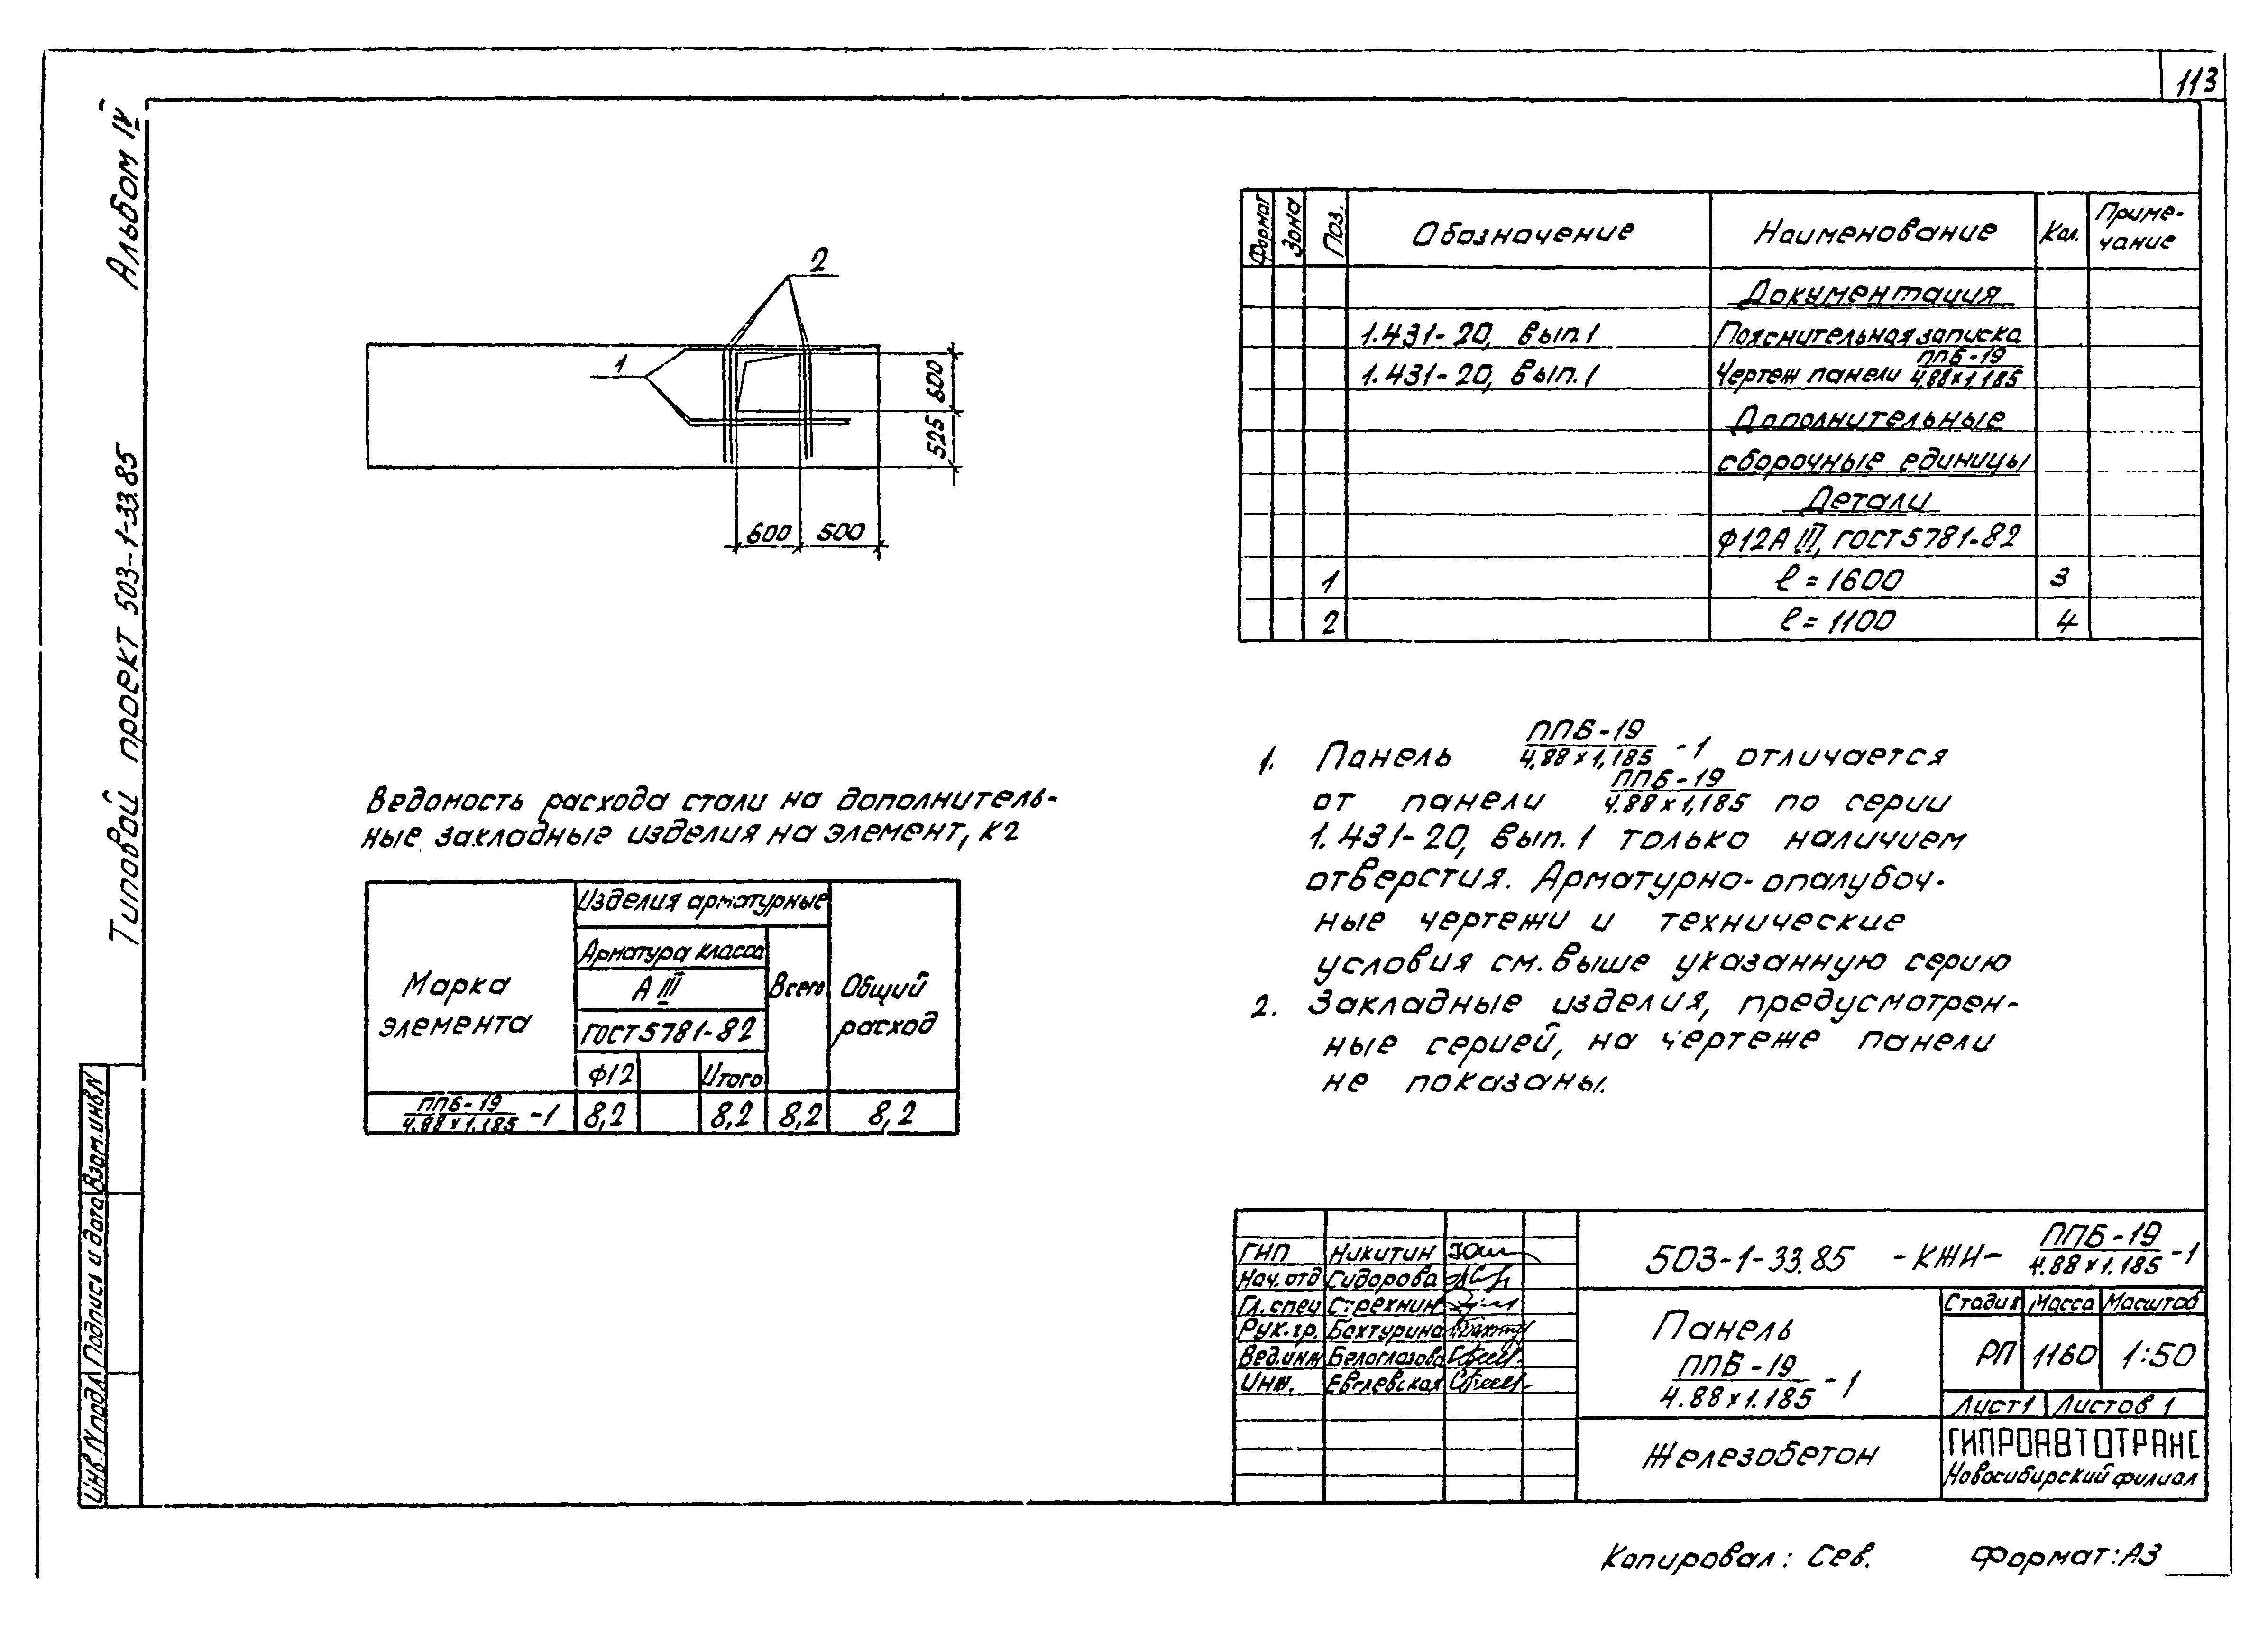 113
Альбом IV
Типовой проект 503-1-33.85
2
1
600
525
600
500
Формат
Зона
Поз.
Обозначение
Наименование
Кол.
Приме-
чание
Документация
1.431-20, вып.1
Пояснительная записка
1.431-20, вып.1
Чертеж панели ППБ-19
4.88×1.185
Дополнительные
сборочные единицы
Детали
Ф12А III, ГОСТ 5781-82
1
ℓ=1600
3
2
ℓ=1100
4
1. Панель ППБ-19
4,88×1,185 -1 отличается
от панели ППБ-19
4.88×1,185 по серии
1.431-20, вып.1 только наличием
отверстия. Арматурно-опалубоч-
ные чертежи и технические
условия см. выше указанную серию
2. Закладные изделия, предусмотрен-
ные серией, на чертеже панели
не показаны.
Ведомость расхода стали на дополнитель-
ные закладные изделия на элемент, кг
Марка
элемента
Изделия арматурные
Арматура класса
А III
ГОСТ 5781-82
Ф12
Итого
Всего
Общий
расход
ППБ-19
4.88×1.185 -1
8,2
8,2
8,2
8,2
Взам.инв.N
Подпись и дата
Инв.N подл
ГИП Никитин
Нач.отд Сидорова
Гл.спец Стрехнин
Рук.гр. Бахтурина
Вед.инж Белоглазова
Инж. Евглевская
503-1-33.85 -КЖИ- ППБ-19
4.88×1.185 -1
Панель
ППБ-19
4.88×1.185 -1
Стадия
Масса
Масштаб
РП
1160
1:50
Лист1
Листов 1
Железобетон
ГИПРОАВТОТРАНС
Новосибирский филиал
Копировал: Сев.
Формат: А3